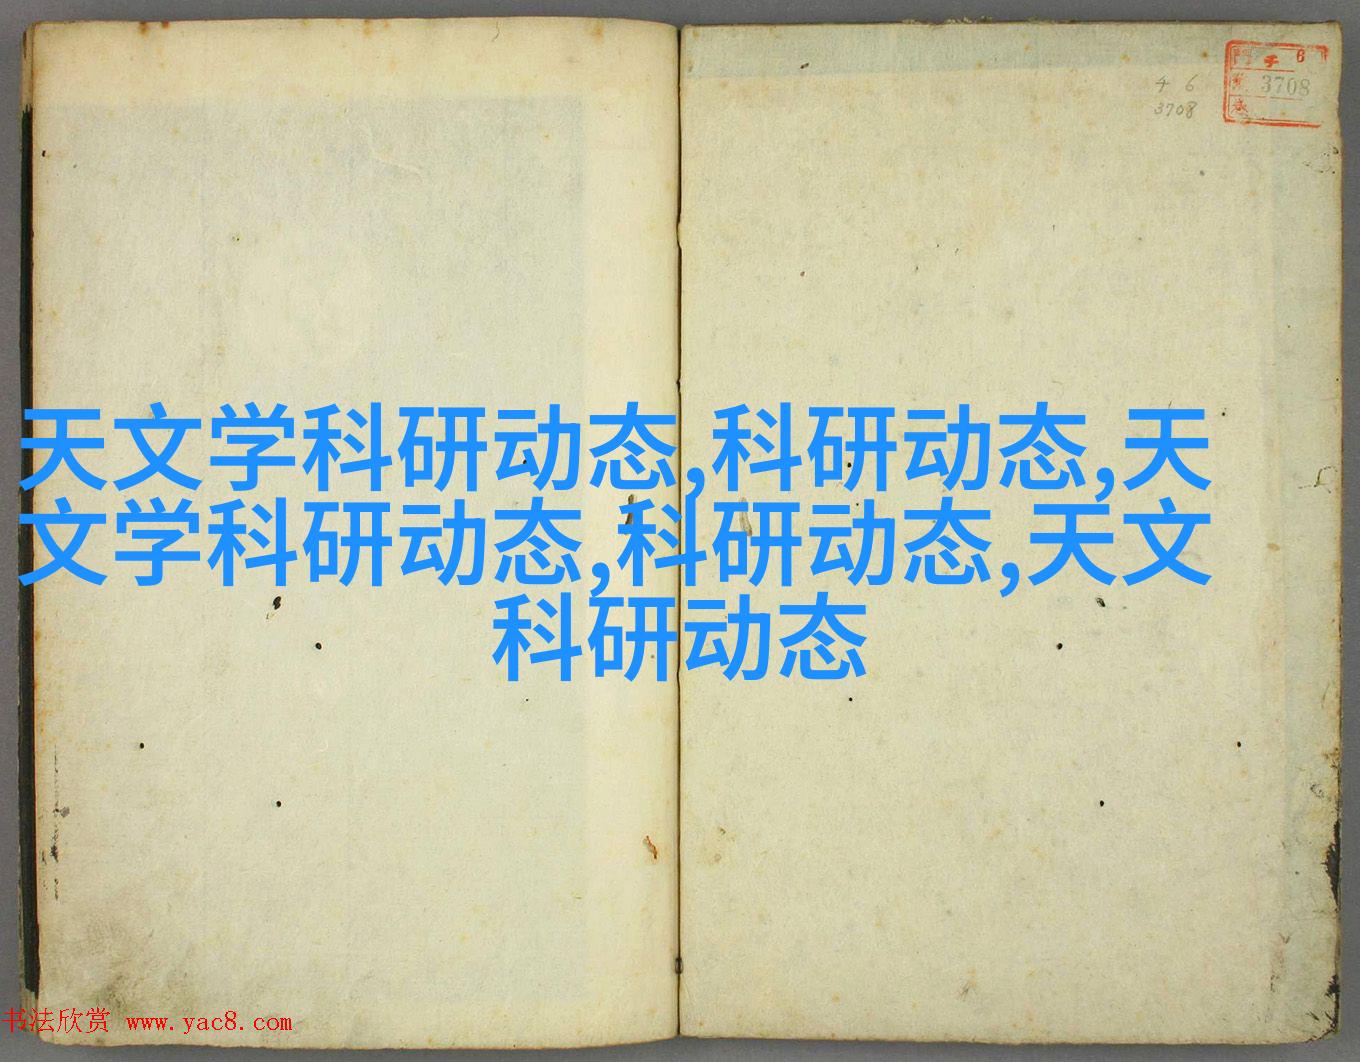 チ 6
3708
4 6
3708
天文学科研动态,科研动态,天
文学科研动态,科研动态,天文
科研动态
书法欣赏 www.yac8.com